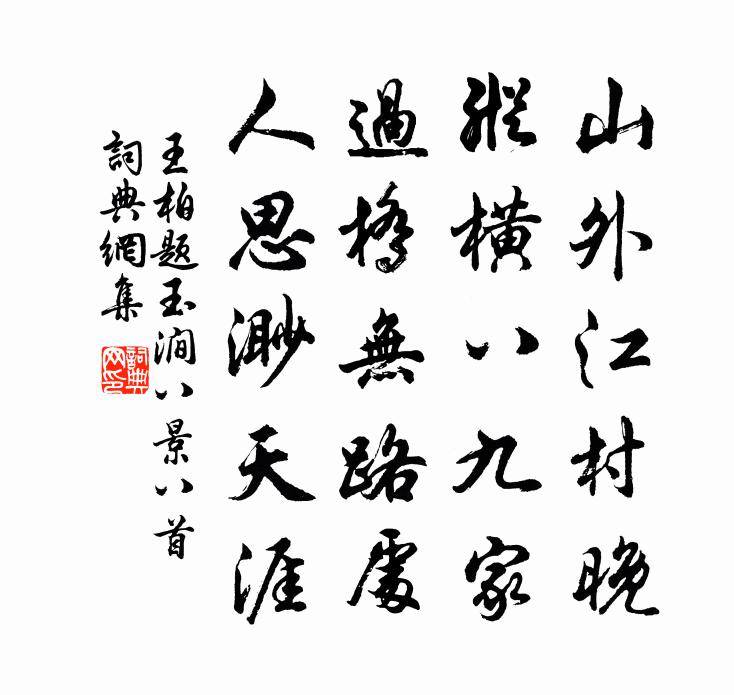 山外江村晚
縱橫八九家
過橋無路處
人思渺天涯
王柏题玉澗八景八首
詞典網集
詞典网印